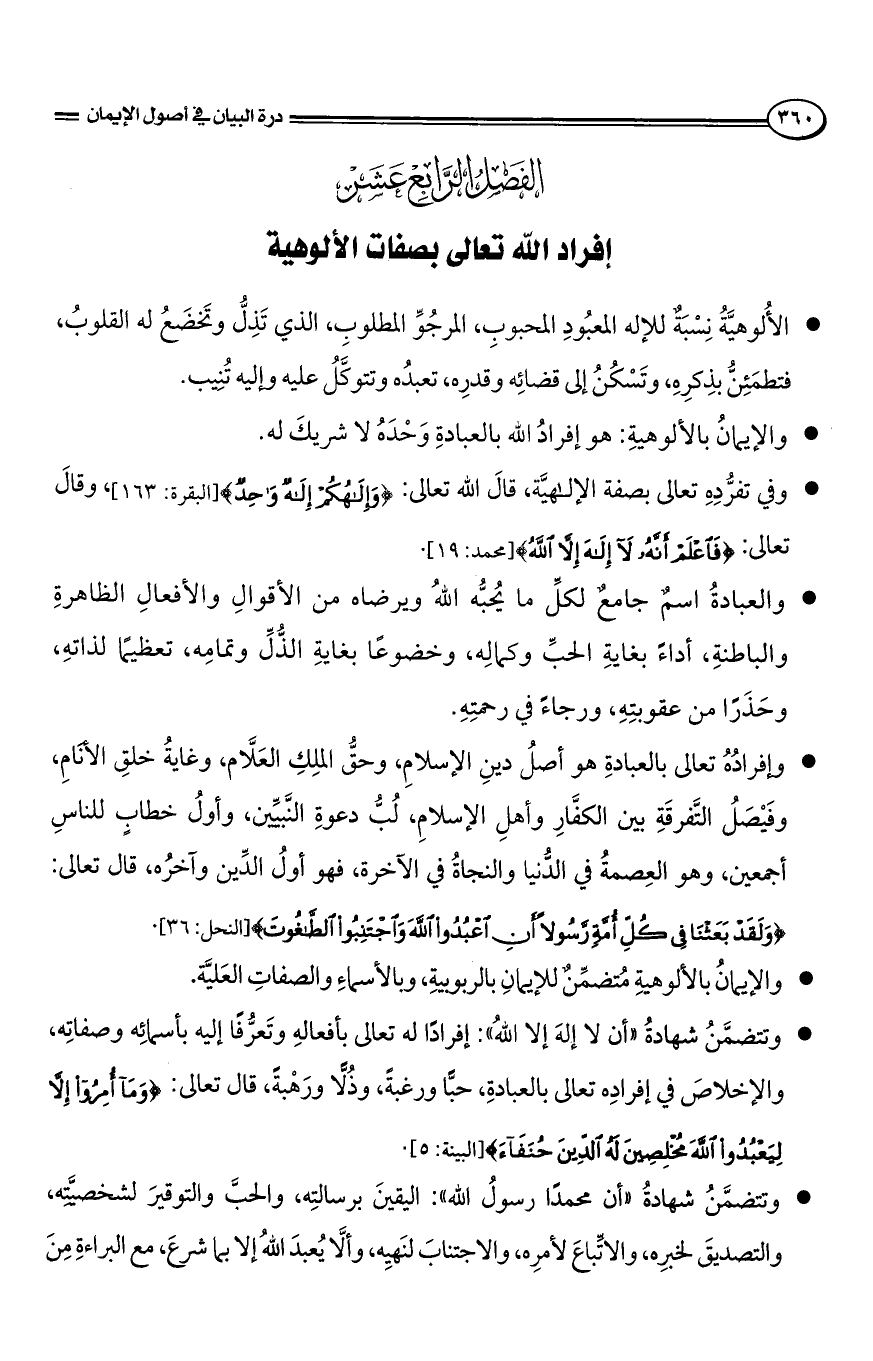 ٣٦٠ درة البيان في أصول الإيمان
الفَصْلُ الرَّابِعَ عَشَرَ
إفراد الله تعالى بصفات الألوهية
● الأُلوهيَّةُ نِسْبَةٌ للإله المعبُودِ المحبوبِ، المرجُوِّ المطلوبِ، الذي تَذِلُّ وتَخضَعُ له القلوبُ،
فتطمَئِنُّ بذِكرِهِ، وتَسْكُنُ إلى قضائِه وقدرِه، تعبدُه وتتوكَّلُ عليه وإليه تُنِيب.
● والإيمانُ بالألوهيةِ: هو إفرادُ الله بالعبادةِ وَحْدَهُ لا شريكَ له.
● وفي تفرُّدِهِ تعالى بصفة الإلـٰهيَّة، قالَ الله تعالى: ﴿وَإِلَـٰهُكُمْ إِلَـٰهٌ وَٰحِدٌ﴾[البقرة: ١٦٣]، وقالَ
تعالى: ﴿فَٱعْلَمْ أَنَّهُۥ لَآ إِلَـٰهَ إِلَّا ٱللَّهُ﴾[محمد: ١٩].
● والعبادةُ اسمٌ جامعٌ لكلِّ ما يُحبُّه اللهُ ويرضاه من الأقوالِ والأفعالِ الظاهرةِ
والباطنةِ، أداءً بغايةِ الحبِّ وكمالِه، وخضوعًا بغايةِ الذُّلِّ وتمامِه، تعظيمًا لذاتهِ،
وحَذَرًا من عقوبتِهِ، ورجاءً في رحمتِهِ.
● وإفرادُهُ تعالى بالعبادةِ هو أصلُ دينِ الإسلامِ، وحقُّ الملِكِ العَلَّام، وغايةُ خلقِ الأنَامِ،
وفَيْصَلُ التَّفرقَةِ بين الكفَّارِ وأهلِ الإسلامِ، لُبُّ دعوةِ النَّبيِّين، وأولُ خطابٍ للناسِ
أجمعين، وهو العِصمةُ في الدُّنيا والنجاةُ في الآخرة، فهو أولُ الدِّين وآخرُه، قال تعالى:
﴿وَلَقَدْ بَعَثْنَا فِى كُلِّ أُمَّةٍ رَّسُولًا أَنِ ٱعْبُدُوا۟ ٱللَّهَ وَٱجْتَنِبُوا۟ ٱلطَّـٰغُوتَ﴾[النحل: ٣٦].
● والإيمانُ بالألوهيةِ مُتضمِّنٌ للإيمانِ بالربوبيةِ، وبالأسماءِ والصفاتِ العَليَّة.
● وتتضمَّنُ شهادةُ «أن لا إلهَ إلا اللهُ»: إفرادًا له تعالى بأفعالهِ وتَعرُّفًا إليه بأسمائه وصفاتِه،
والإخلاصَ في إفرادِه تعالى بالعبادةِ، حبًّا ورغبةً، وذُلًّا ورَهْبةً، قال تعالى: ﴿وَمَآ أُمِرُوٓا۟ إِلَّا
لِيَعْبُدُوا۟ ٱللَّهَ مُخْلِصِينَ لَهُ ٱلدِّينَ حُنَفَآءَ﴾[البينة: ٥].
● وتتضمَّنُ شهادةُ «أن محمدًا رسولُ الله»: اليقينَ برسالتِه، والحبَّ والتوقيرَ لشخصيَّتِه،
والتصديقَ لخبرِه، والاتِّباعَ لأمرِه، والاجتنابَ لنَهيِه، وألَّا يُعبدَ اللهُ إلا بما شرعَ، مع البراءةِ مِنَ